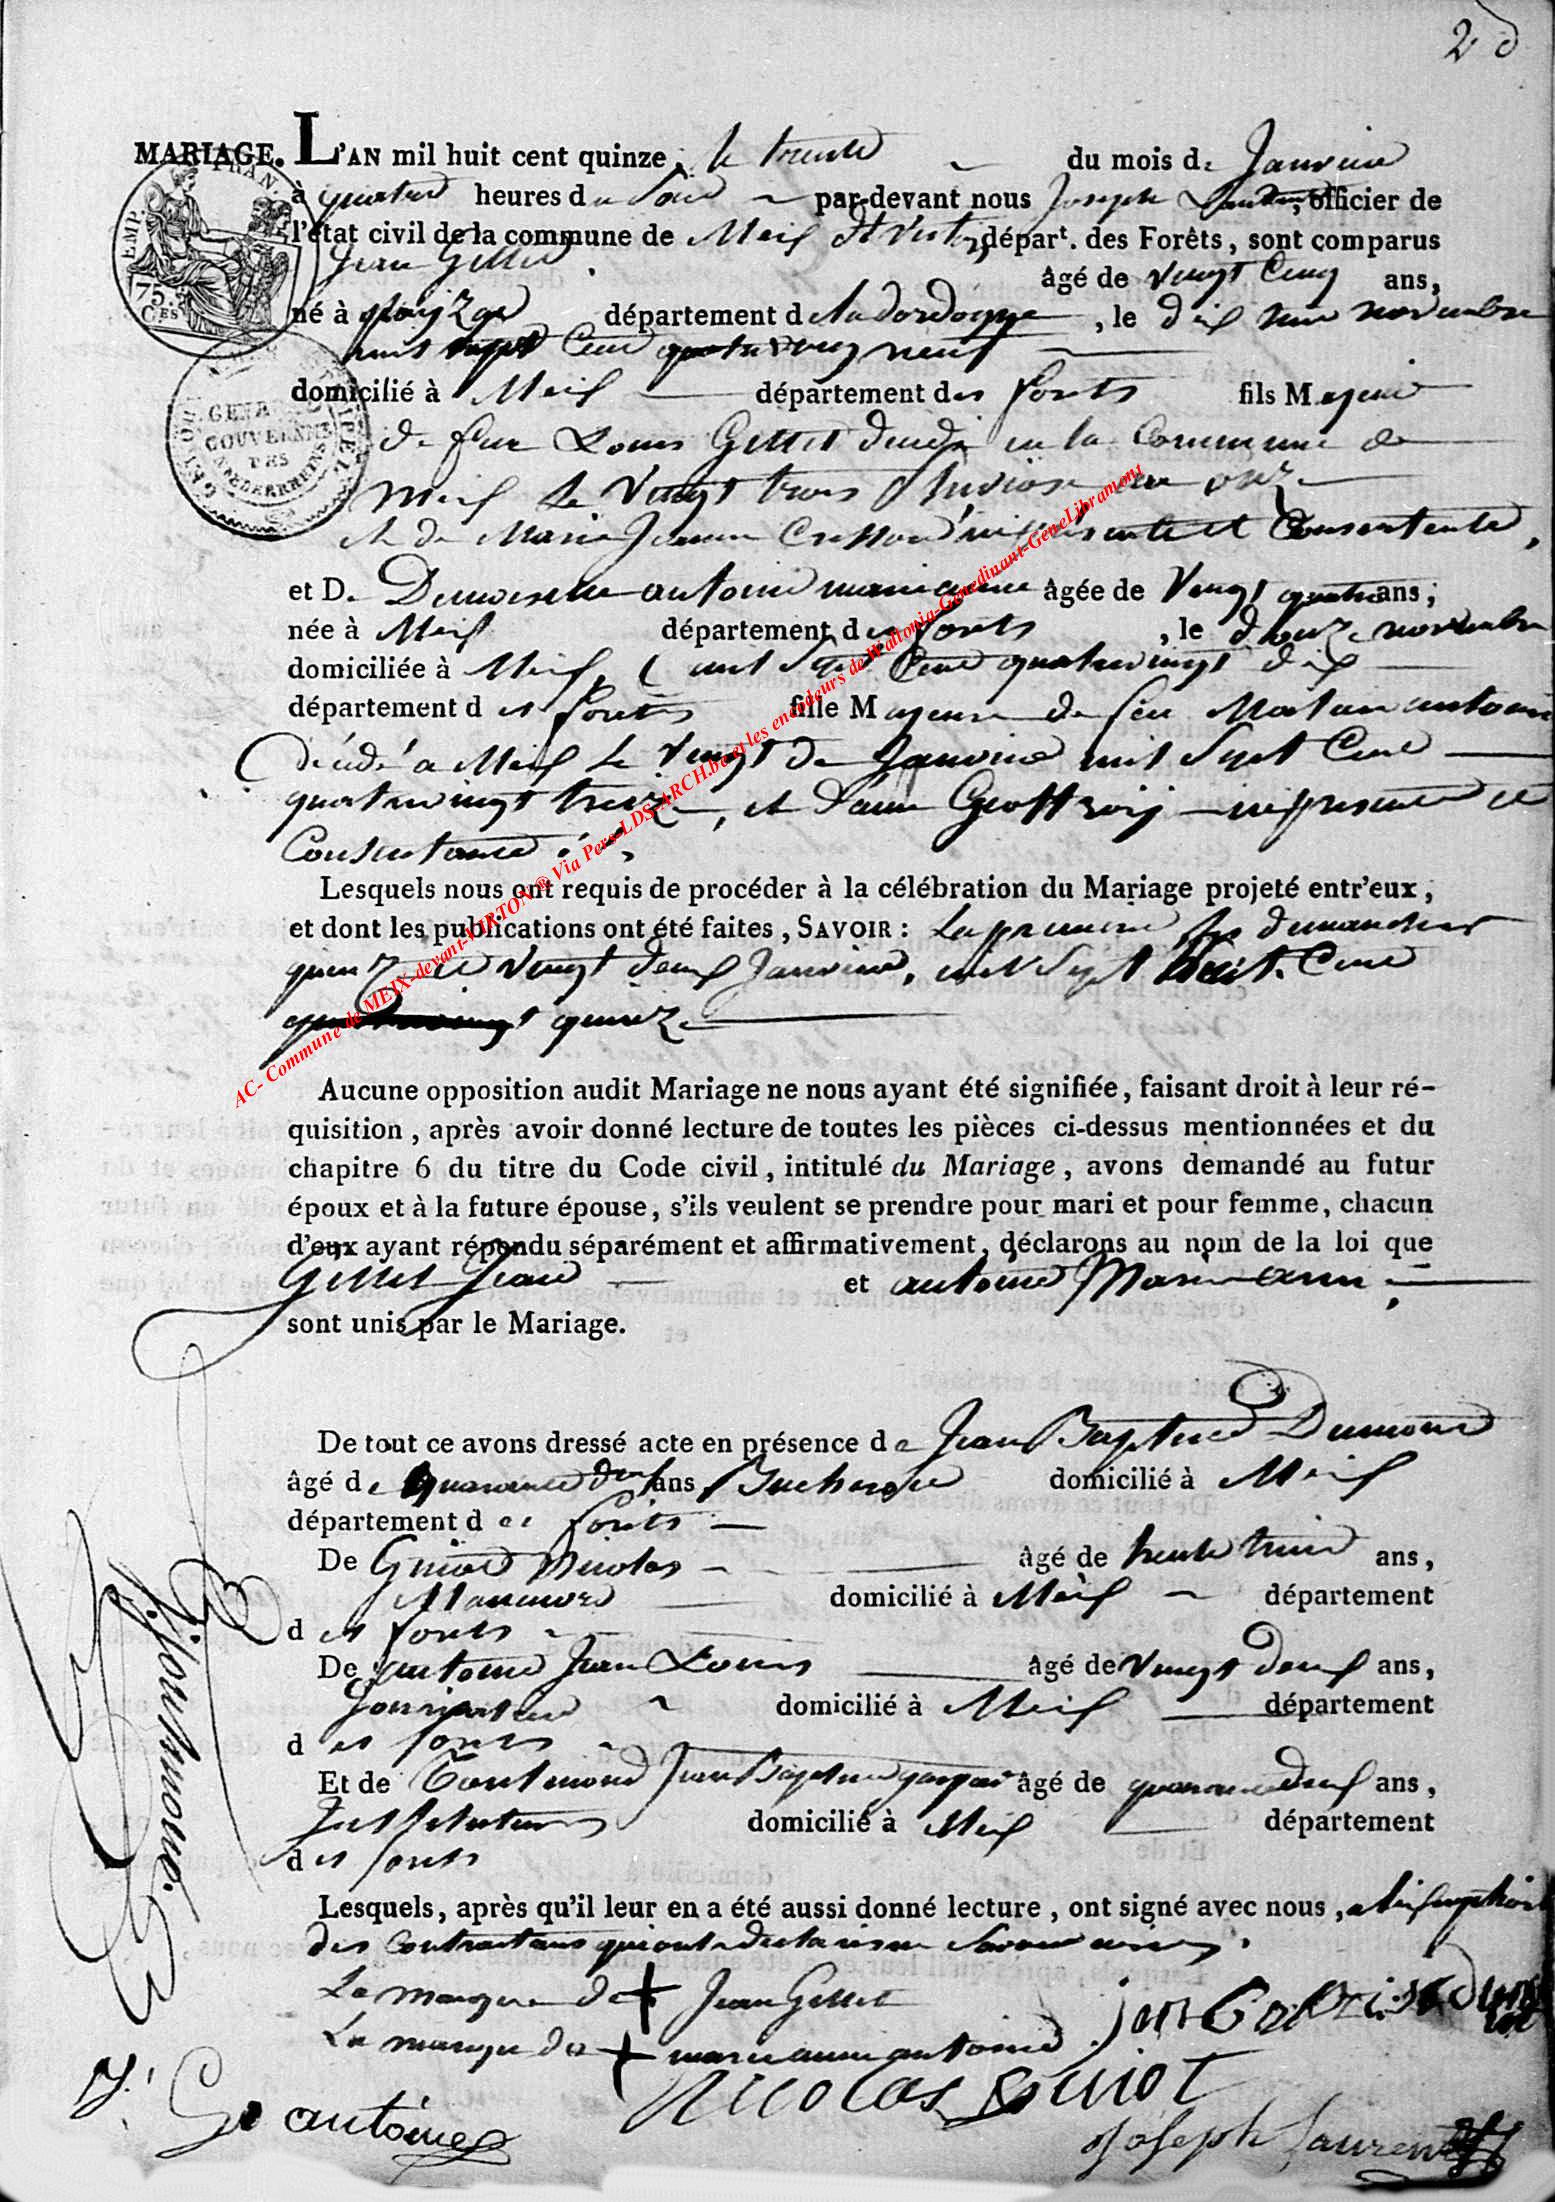 MARIAGE. L'AN mil huit cent quinze, le trente du mois de Janvier
à quatre heures du Soir par-devant nous Joseph officier de
l'état civil de la commune de Meix dt Virton, départ. des Forêts, sont comparus
Jean Gillet âgé de vingt Cinq ans,
né à département de la dordogne, le dix neuf novembre
mil sept Cent quatre vingt neuf
domicilié à Meix département des forets fils Majeur
de feu Louis Gillet décédé en la Commune de
Meix le Vingt trois pluviose an onze
et de Marie Jeanne ici présente et Consentente,
et De Demoiselle antoine marie anne âgée de Vingt quatre ans;
née à Meix département des forets, le douze novembre
domiciliée à Meix, ( mil Sept Cent quatre vingt dix
département des forets fille Majeure de feu antoine
décédé a Meix le Vingt de Janvier mil Sept Cent
quatre vingt treize, et d'anne Geoffroij ici présente et
Consentante.
Lesquels nous ont requis de procéder à la célébration du Mariage projeté entr'eux,
et dont les publications ont été faites, SAVOIR: La premiere les dimanches
quinze et Vingt deux Janvier, mil Sept huit Cent
quatre vingt quinze
Aucune opposition audit Mariage ne nous ayant été signifiée, faisant droit à leur ré-
quisition, après avoir donné lecture de toutes les pièces ci-dessus mentionnées et du
chapitre 6 du titre du Code civil, intitulé du Mariage, avons demandé au futur
époux et à la future épouse, s'ils veulent se prendre pour mari et pour femme, chacun
d'eux ayant répondu séparément et affirmativement, déclarons au nom de la loi que
Gillet Jean et antoine Marie anne,
sont unis par le Mariage.
De tout ce avons dressé acte en présence de Jean Baptiste Dumont
âgé de quarante deux ans Bucheron domicilié à Meix
département des forets
De Guiot Nicolas âgé de trente trois ans,
Manuvre domicilié à Meix département
des forets
De antoine Jean Louis âgé de vingt deux ans,
domicilié à Meix département
des forets
Et de Jean Baptiste gaspar âgé de quarante deux ans,
Instituteur domicilié à Meix département
des forets
Lesquels, après qu'il leur en a été aussi donné lecture, ont signé avec nous, a l'exception
des Contractans qui ont declarés ne Savoir ecrire.
La marque de + Jean Gillet
La marque de + marie anne antoine
Nicolas Guiot
antoine
Joseph Laurent
EMP. FRAN.
75. CES
AC- Commune de MEIX-devant-VIRTON ® Via Pers-LDS-ARCH.be et les encodeurs de Wallonia-Genedinant-GeneLibramont